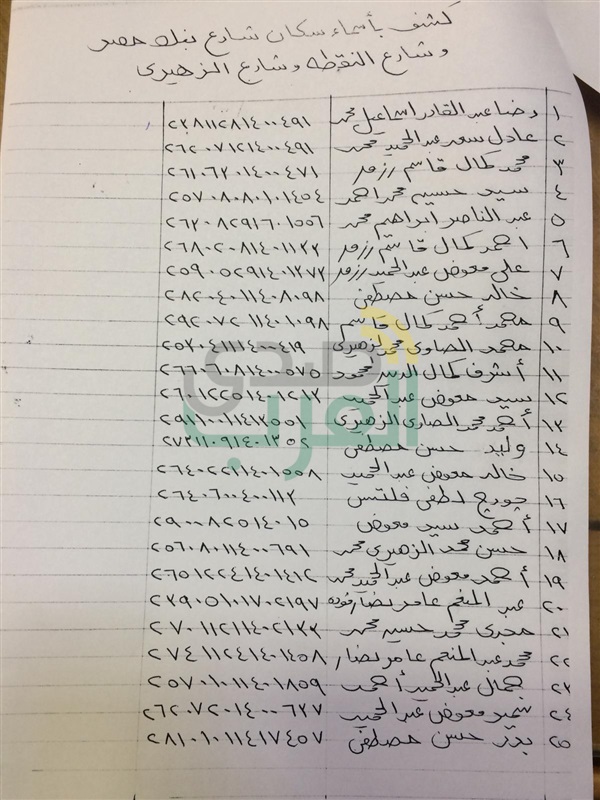 كشف بأسماء سكان شارع بنك مصر
وشارع النقطه وشارع الزهيرى
١ رضا عبد القادر اسماعيل محمد ٢٣٨١١٢٨١٤٠٠٤٩١
٢ عادل سعد عبد الحميد محمد ٢٦٢٠٧١٢١٤٠٠٤٩١
٣ محمد كمال قاسم ٢٦١٠٦٢٠١٤٠٠٤٧١
٤ سيد حسين محمد احمد ٢٥٧٠٨٠٨٠١٠١٤٥٤
٥ عبد الناصر ابراهيم محمد ٢٦٢٠٨٢٩١٦٠١٥٥٦
٦ احمد كمال قاسم ٢٦٨٠٢٠٨١٤٠١١٢٢
٧ على معوض عبد الحميد ٢٥٩٠٥٢٩١٤٠١٢٧٢
٨ خالد حسن مصطفى ٢٨٢٠٤٠١١٤٠٨٠٩٨
٩ محمد أحمد كمال قاسم ٢٩٢٠٧٢١١٤٠١٠٩٨
١٠ محمد الصاوى محمد الزهيرى ٢٥٢٠٤١١١٤٠٠٤١٩
١١ أشرف كمال الدين محمود ٢٦٦٠٦٠٨١٤٠٠٥٧٥
١٢ سيد معوض عبد الحميد ٢٦٠١٢٢٥١٤٠١٢١٣
١٣ أحمد محمد الصاوى الزهيرى ٢٩١١٠٠١١٤١٢٥٥١
١٤ وليد حسن مصطفى ٢٧٣١١٠٩١٤٠١٣٥٢
١٥ خالد معوض عبد الحميد ٢٦٤٠٢٢١١٤٠١٥٥٨
١٦ جورج لطفى فلتس ٢٦٤٠٦٠٠٤٠٠١١٢
١٧ أحمد سيد معوض ٢٩٠٠٨٢٥١٤٠١٥
١٨ حسن محمد الزهيرى محمد ٢٥٦٠٨٠١١٤٠٠٦٩١
١٩ أحمد معوض عبد الحميد محمد ٢٦٥١٢٢٤١٤٠١٤١٢
٢٠ عبد المنعم عامر نصار ٢٣٩٠٥١٠١٧٠٢١٩٧
٢١ مجدى محمد حسين محمد ٢٧٠١١٢١١٤٠٢١٣٣
٢٢ محمد عبد المنعم عامر نصار ٢٧٤١١٢٤١٤٠١٤٥٨
٢٣ جمال عبد الحميد أحمد ٢٥٧٠١٠١١٤٠١٨٥٩
٢٤ سمير معوض عبد الحميد ٢٦٢٠٧٢٠١٤٠٠٦٢٧
٢٥ بدر حسن مصطفى ٢٨١٠١٠١١٤١٧٤٥٧
صدى
العرب